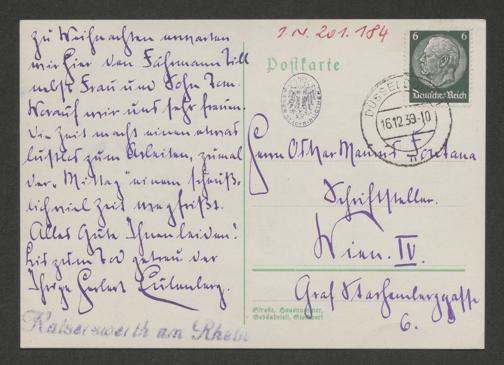 Zu Weihnachten erwarten
wir hier den Fährmann Till
nebst Frau und Sohn Tom.
Worauf wir uns sehr freun.
Die Zeit macht einen etwas
lustlos zum Arbeiten, zumal
der „Mittag“ einem
viel Zeit wegfrißt.
Alles Gute Ihnen beiden!
Bis zum Tod getreu der
Ihrige Herbert Eulenberg.
Kaiserswerth am Rhein
I.N. 201.184
Postkarte
6 6
Deutsches Reich
DÜSSEL
16.12.39-10
Herrn Oskar Maurus Fontana
Schriftsteller.
Wien. IV.
Graf Starhemberggasse
6.
Straße, Hausnummer,